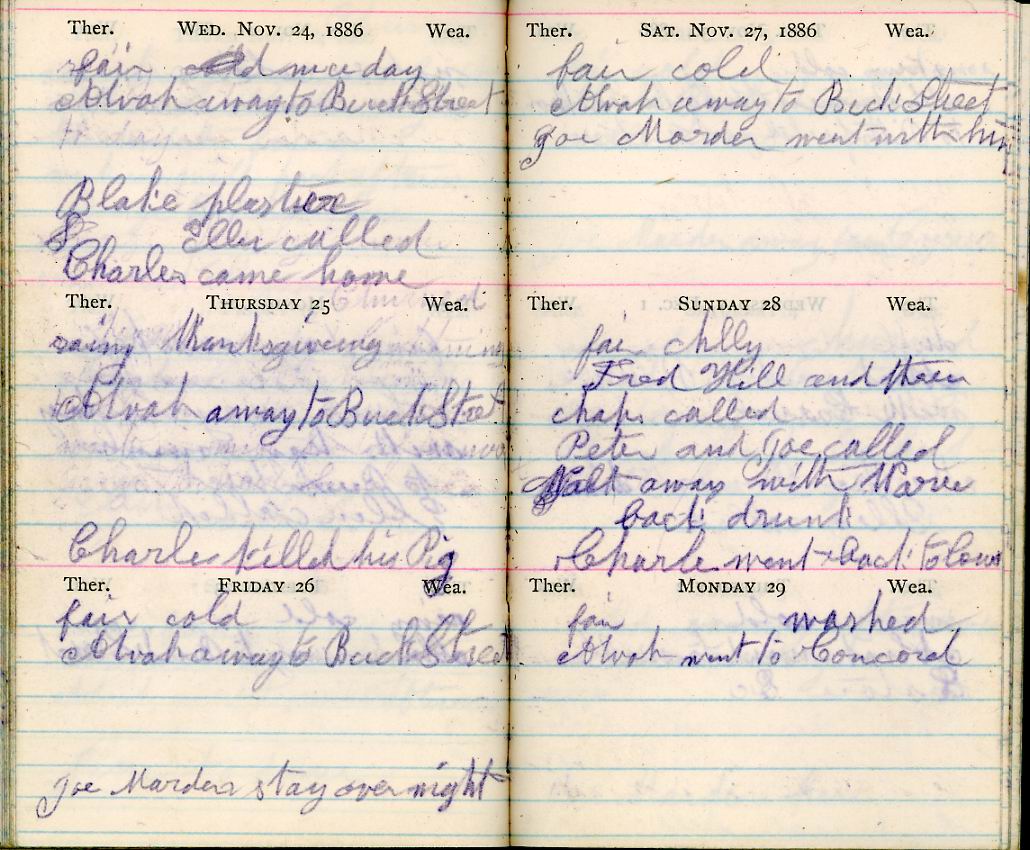 Ther. WED. NOV. 24, 1886 Wea.
fair nice day
Alvah away to Buck Street
Blake plaster
Ella called
Charles came home
Ther. THURSDAY 25 Wea.
rainy thanksgiveing
Alvah away to Buck Street
Charles killed his Pig
Ther. FRIDAY 26 Wea.
fair cold
Alvah away to Buck Street
Joe Marden stay over night
Ther. SAT. NOV. 27, 1886 Wea.
fair cold
Alvah away to Buck Street
Joe Marden went with him
Ther. SUNDAY 28 Wea.
fair chlly
Fred Hill and three
chaps called
Peter and Joe called
Walt away with
back drunk
Charle went back to
Ther. MONDAY 29 Wea.
fair washed
Alvah went to Concord